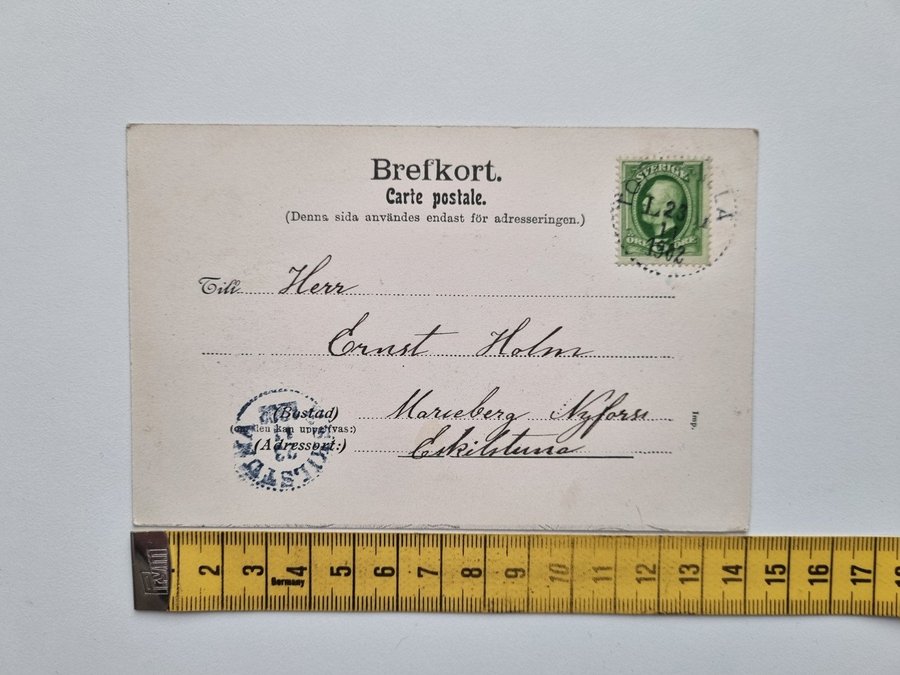 Brefkort.
Carte postale.
(Denna sida användes endast för adresseringen.)
SVERIGE
L. 23
1902
Till Herr
Ernst Holm
(Bostad) Marieberg Nyforss
(om den kan uppgifvas:)
(Adressort:) Eskilstuna
ESKILSTUNA
Imp.
2 3 4 5 6 7 8 9 10 11 12 13 14 15 16 17
Germany